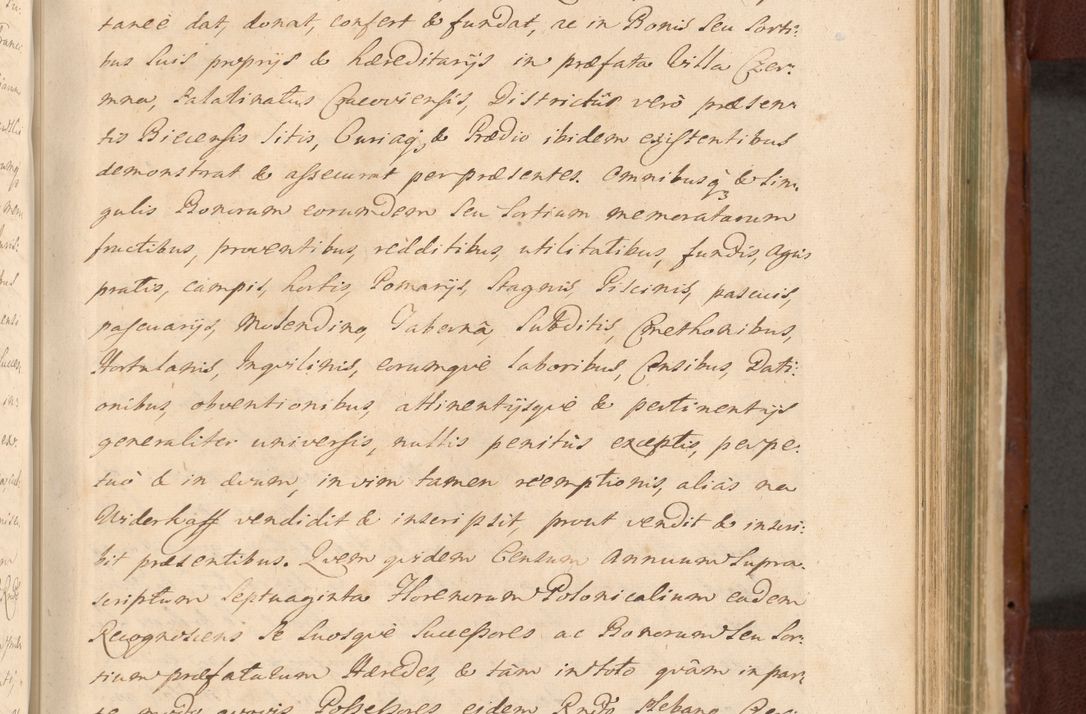 taneè dat, donat, confert & fundat, ac in Bonis seu Sorti:
bus suis proprijs & hæreditarijs in præfata Villa Czer:
mna, Palatinatus Cracoviensis, Districtûs verò præsen:
tis Biecensis sitis, Curiaq; & Prædio ibidem existentibus
demonstrat & assecurat per præsentes. Omnibusq; & Sin:
gulis Bonorum eorumdem seu Sortium memoratarum
fructibus, proventibus, redditibus, utilitatibus, fundis, agris
pratis, campis, hortis, Pomarijs, Stagnis, Piscinis, pascuis,
pascuarijs, Molendino, Tabernâ, Subditis, Cmethonibus,
Hortulanis, Inqvilinis, eorumqvè laboribus, Censibus, Dati:
onibus, obventionibus, attinentijsqvè & pertinentijs
generaliter universis, nullis penitùs exceptis, perpe:
tuò & in ævum, in vim tamen reèmptionis, aliàs na
Widerkaff vendidit & inscripsit, prout vendit & inscri:
bit præsentibus. Qvem qvidem Censum Annuum Supra:
scriptum Septuaginta Florenorum Polonicalium eadem
Recognoscens Se Suosqvè Successores ac Bonorum seu Sor:
tium præfatarum Hæredes, & tàm in toto qvàm in par:
te modo qvovis Possessores eidem Rndo Plebano